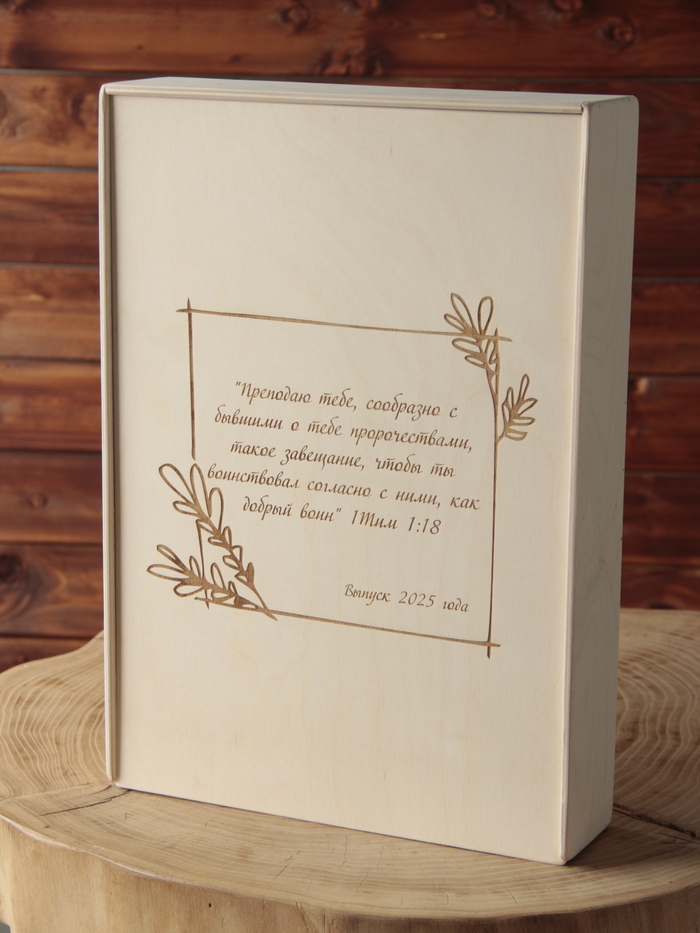 "Преподаю тебе, сообразно с
бывшими о тебе пророчествами,
такое завещание, чтобы ты
воинствовал согласно с ними, как
добрый воин" 1Тим 1:18
Выпуск 2025 года